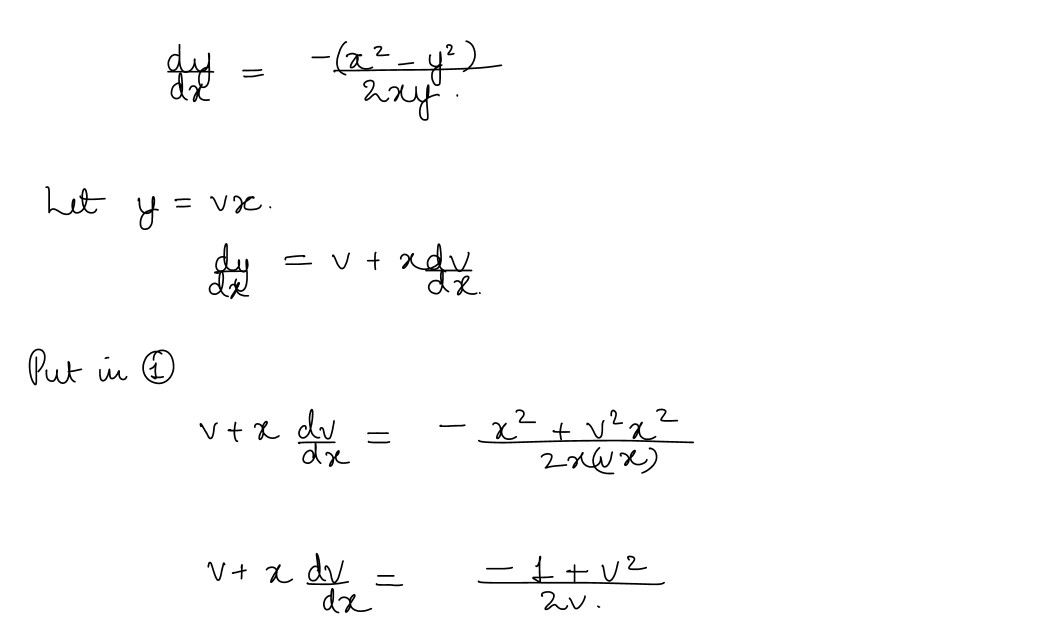 dy/dx = -(x² - y²)/2xy.
Let y = vx.
dy/dx = v + x dv/dx.
Put in ①
v + x dv/dx = - x² + v²x²/2x(vx)
v + x dv/dx = - 1 + v²/2v.